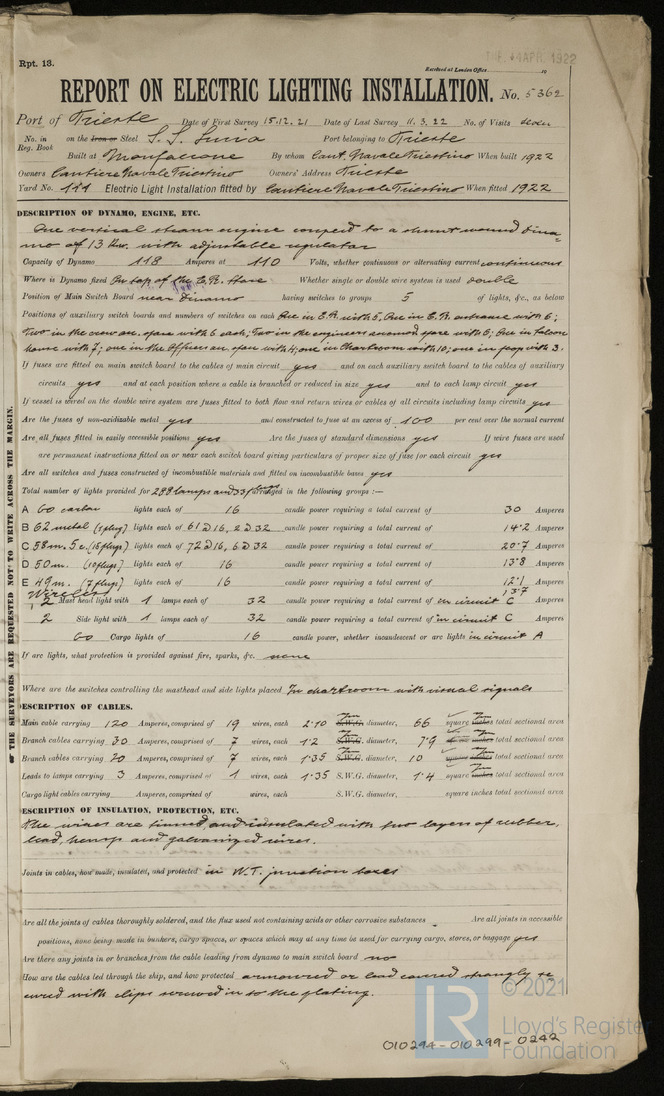 Rpt. 13.
TUE. 4 APR. 1922
Received at London Office 19
REPORT ON ELECTRIC LIGHTING INSTALLATION. No. 5362
Port of Trieste Date of First Survey 15.12.21 Date of Last Survey 11.3.22 No. of Visits
No. in Reg. Book on the Iron or Steel S.S. Lucia Port belonging to Trieste
Built at Monfalcone By whom Cant. Navale Triestino When built 1922
Owners Cantiere Navale Triestino Owners' Address Trieste
Yard No. 111 Electric Light Installation fitted by Cantiere Navale Triestino When fitted 1922
DESCRIPTION OF DYNAMO, ENGINE, ETC.
One vertical steam engine coupled to a shunt wound dina-
mo of 13 Kw. with adjustable regulator
Capacity of Dynamo 118 Amperes at 110 Volts, whether continuous or alternating current continuous
Where is Dynamo fixed On top of the E.R. Whether single or double wire system is used double
Position of Main Switch Board near Dinamo having switches to groups 5 of lights, &c., as below
Positions of auxiliary switch boards and numbers of switches on each One in E.R. with 5, One in E.R. entrance with 6;
Two in the crew with 6 each; Two in the engineers with 6; One in Saloon
with 7; one in the Officers with 4; one in Chartroom with 10; one in poop with 3.
If fuses are fitted on main switch board to the cables of main circuit yes and on each auxiliary switch board to the cables of auxiliary
circuits yes and at each position where a cable is branched or reduced in size yes and to each lamp circuit yes
If vessel is wired on the double wire system are fuses fitted to both flow and return wires or cables of all circuits including lamp circuits yes
Are the fuses of non-oxidizable metal yes and constructed to fuse at an excess of 100 per cent over the normal current
Are all fuses fitted in easily accessible positions yes Are the fuses of standard dimensions yes If wire fuses are used
are permanent instructions fitted on or near each switch board giving particulars of proper size of fuse for each circuit yes
Are all switches and fuses constructed of incombustible materials and fitted on incombustible bases yes
Total number of lights provided for 288 lamps and 33 plugs arranged in the following groups :—
A 60 carbon lights each of 16 candle power requiring a total current of 30 Amperes
B 62 metal (7 plug) lights each of 61 à 16, 2 à 32 candle power requiring a total current of 14·2 Amperes
C 58 m. 5 c. (15 plugs) lights each of 72 à 16, 6 à 32 candle power requiring a total current of 20·7 Amperes
D 50 m. (10 plugs) lights each of 16 candle power requiring a total current of 13·8 Amperes
E 49 m. (7 plugs) lights each of 16 candle power requiring a total current of 12·1 Amperes
Wireless 13·7
2 Mast head light with 1 lamps each of 32 candle power requiring a total current of in circuit C Amperes
2 Side light with 1 lamps each of 32 candle power requiring a total current of in circuit C Amperes
60 Cargo lights of 16 candle power, whether incandescent or arc lights in circuit A
If arc lights, what protection is provided against fire, sparks, &c. none
Where are the switches controlling the masthead and side lights placed In chartroom with visual signals
DESCRIPTION OF CABLES.
Main cable carrying 120 Amperes, comprised of 19 wires, each 2·10 S.W.G. mm diameter, 66 square inches mm total sectional area
Branch cables carrying 30 Amperes, comprised of 7 wires, each 1·2 S.W.G. mm diameter, 7·9 square inches mm total sectional area
Branch cables carrying 20 Amperes, comprised of 7 wires, each 1·35 S.W.G. mm diameter, 10 square inches mm total sectional area
Leads to lamps carrying 3 Amperes, comprised of 1 wires, each 1·35 S.W.G. diameter, 1·4 square inches mm total sectional area
Cargo light cables carrying Amperes, comprised of wires, each S.W.G. diameter, square inches total sectional area
DESCRIPTION OF INSULATION, PROTECTION, ETC.
The wires are tinned, and insulated with two layers of rubber,
lead, hemp and galvanized wires.
Joints in cables, how made, insulated, and protected in W.T. junction boxes
Are all the joints of cables thoroughly soldered, and the flux used not containing acids or other corrosive substances Are all joints in accessible
positions, none being made in bunkers, cargo spaces, or spaces which may at any time be used for carrying cargo, stores, or baggage yes
Are there any joints in or branches from the cable leading from dynamo to main switch board no
How are the cables led through the ship, and how protected armoured or lead covered strongly se
cured with clips screwed in to the plating.
OF THE SURVEYORS ARE REQUESTED NOT TO WRITE ACROSS THE MARGIN.
© 2021
LR
Lloyd's Register
Foundation
010294-010299-0242